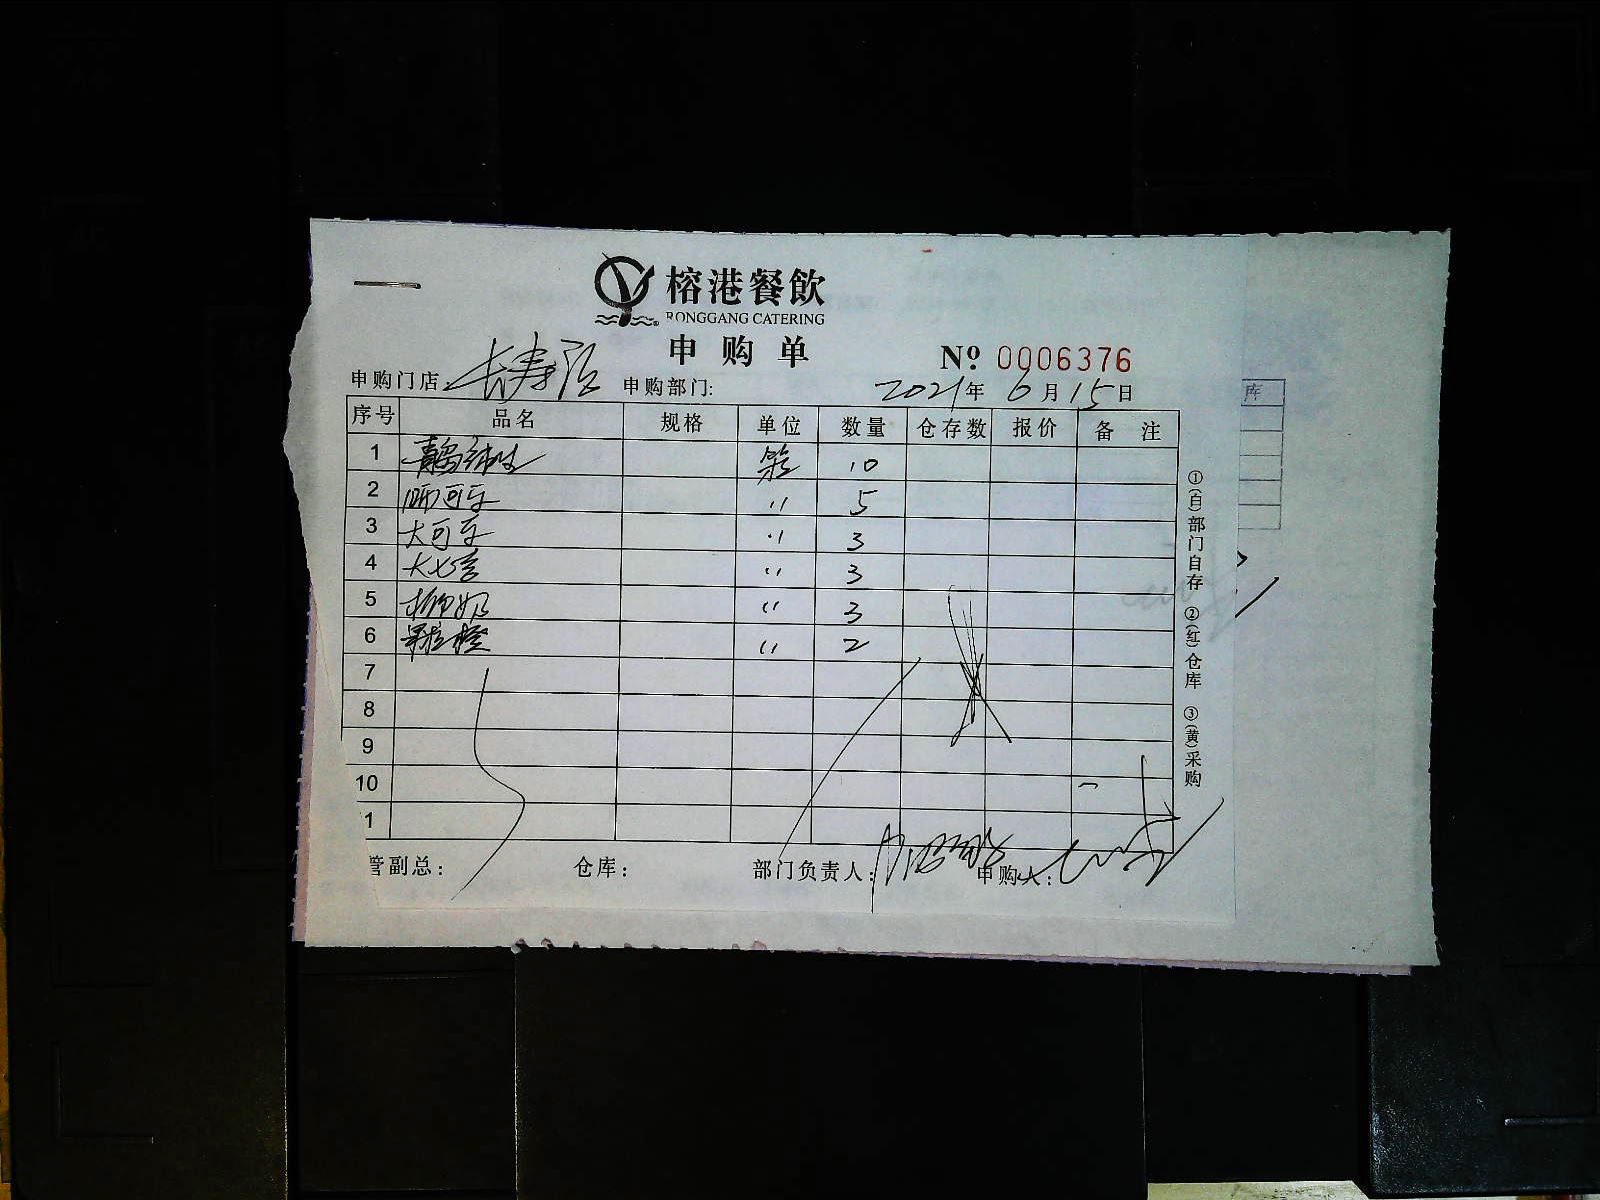 榕港餐飲
RONGGANG CATERING
申购单
№ 0006376
申购门店 长寿路 申购部门: 2021年 6月 15日
序号 品名 规格 单位 数量 仓存数 报价 备 注
1 青岛纯生 箱 10
2 听可乐 〃 5
3 大可乐 〃 3
4 大七喜 〃 3
5 椰奶 〃 3
6 果粒橙 〃 2
7
8
9
10
1
管副总: 仓库: 部门负责人: 申购人:
①(白)部门自存 ②(红)仓库 ③(黄)采购
库